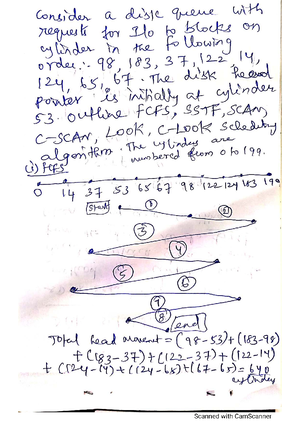 Consider a disk queue with
requests for I/o to blocks on
cylinder in the following
order:- 98, 183, 37, 122 14,
124, 65, 67. The disk head
pointer is initially at cylinder
53. Outline FCFS, SSTF, SCAN,
C-SCAN, LOOK, C-LOOK scheduling
algorithm. The cylinders are
numbered from 0 to 199.
(i) FCFS
0 14 37 53 65 67 98 122 124 183 199
Start ① ②
③
④
⑤
⑥
⑦
⑧ end
Total head movement = (98-53)+(183-98)
+(183-37)+(122-37)+(122-14)
+(124-14)+(124-65)+(67-65)=640
cylinder
Scanned with CamScanner